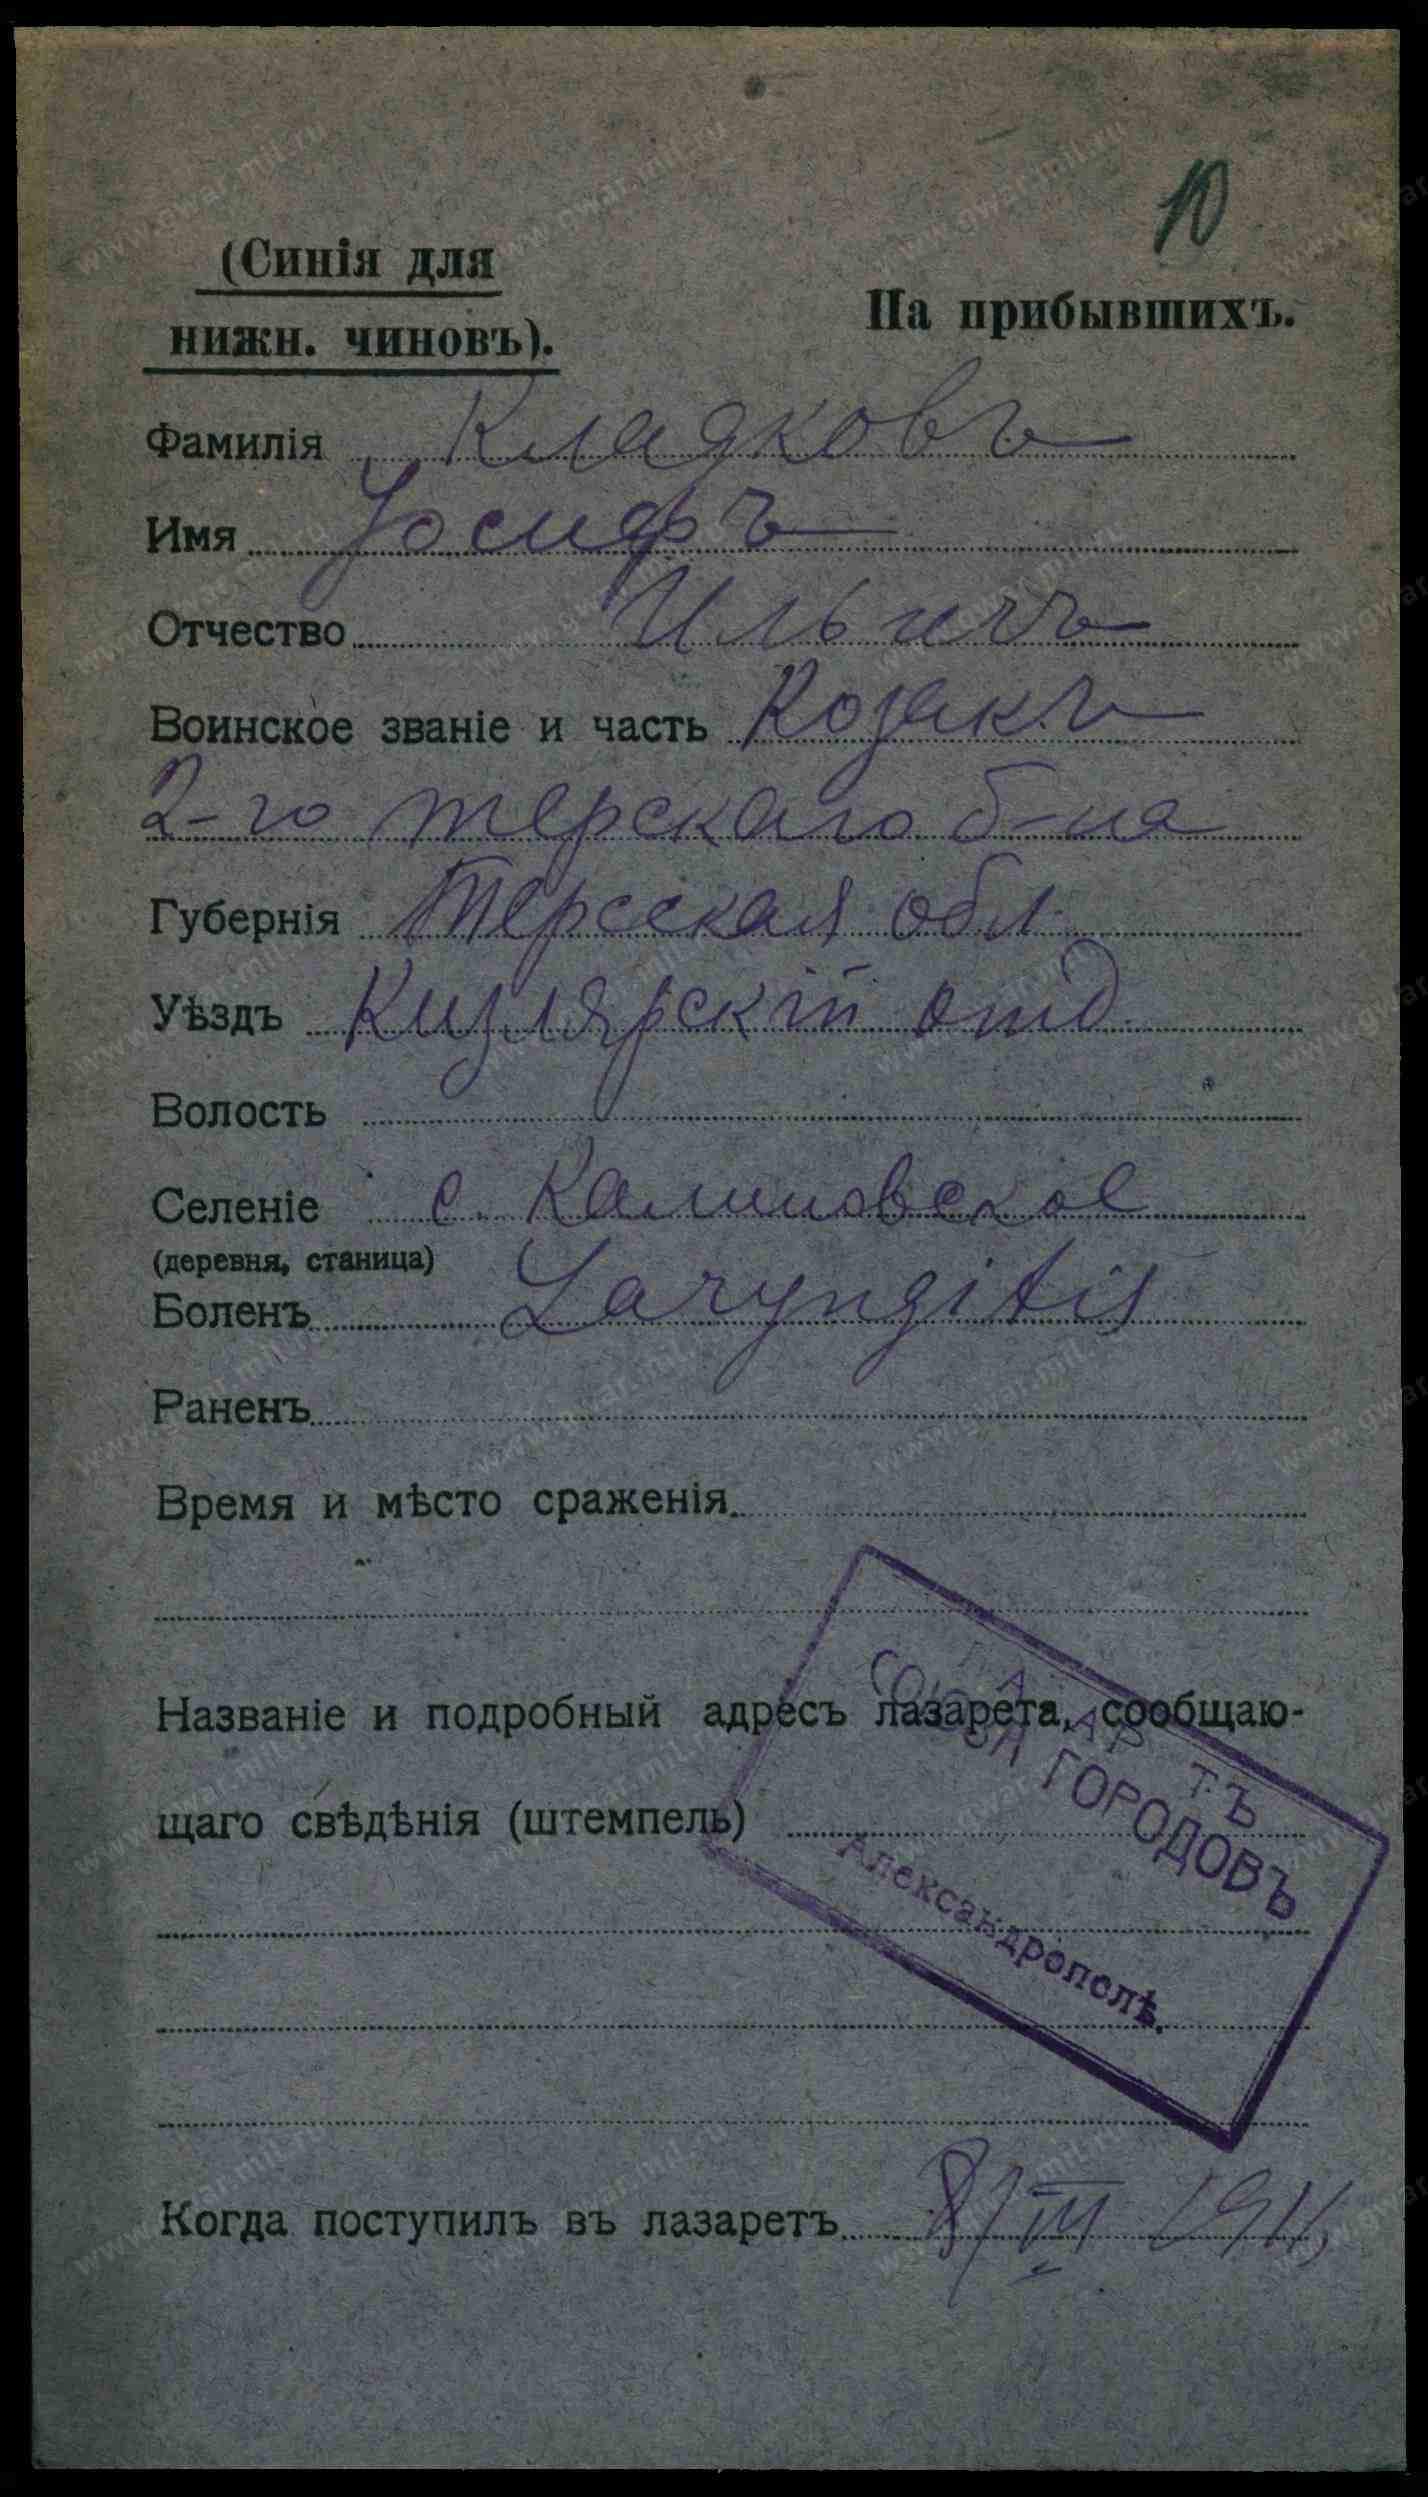 10
(Синія для
нижн. чиновъ).
На прибывшихъ.
Фамилія Кладковъ
Имя Іосифъ
Отчество Ильичъ
Воинское званіе и часть Козакъ
2-го терскаго б-на
Губернія Терская обл.
Уѣздъ Кизлярскій отд.
Волость
Селеніе с. Калиновское
(деревня, станица)
Боленъ Laryngitis
Раненъ
Время и мѣсто сраженія
Названіе и подробный адресъ лазарета, сообщаю-
щаго свѣдѣнія (штемпель)
СОЮЗА ГОРОДОВЪ
Александрополѣ.
Когда поступилъ въ лазаретъ
www.gwar.mil.ru